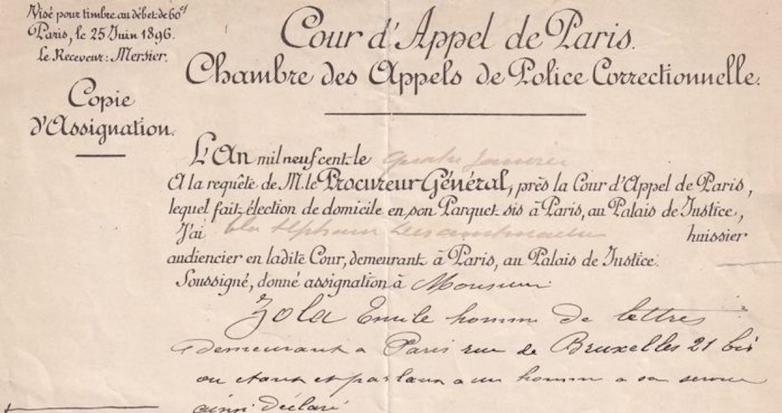 Visé pour timbre au débet de 60c
Paris, le 25 Juin 1896.
Le Receveur: Mersier.
Copie
d'Assignation.
Cour d'Appel de Paris.
Chambre des Appels de Police Correctionnelle.
L'An mil neuf cent le quatre Janvier
A la requête de M. le Procureur Général, près la Cour d'Appel de Paris,
lequel fait élection de domicile en son Parquet sis à Paris, au Palais de Justice,
J'ai huissier
audiencier en ladite Cour, demeurant à Paris, au Palais de Justice.
Soussigné, donné assignation à Monsieur
Zola Emile homme de lettres
demeurant à Paris rue de Bruxelles 21 bis
ou étant et parlant a un homme a son service
ainsi déclaré